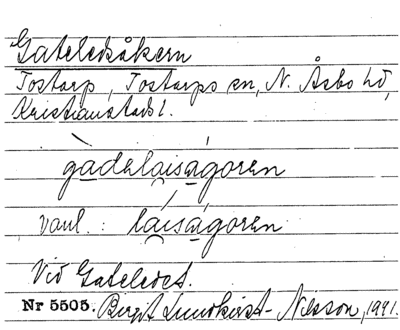 Gateledsåkern
Tostarp, Tostarps sn, N. Åsbo hd,
Kristianstads l.
gadelaisagoren
vanl.: laisagoren
Vid Gateledet.
Nr 5505. Birgit Lundkvist-Nilsson, 1941.